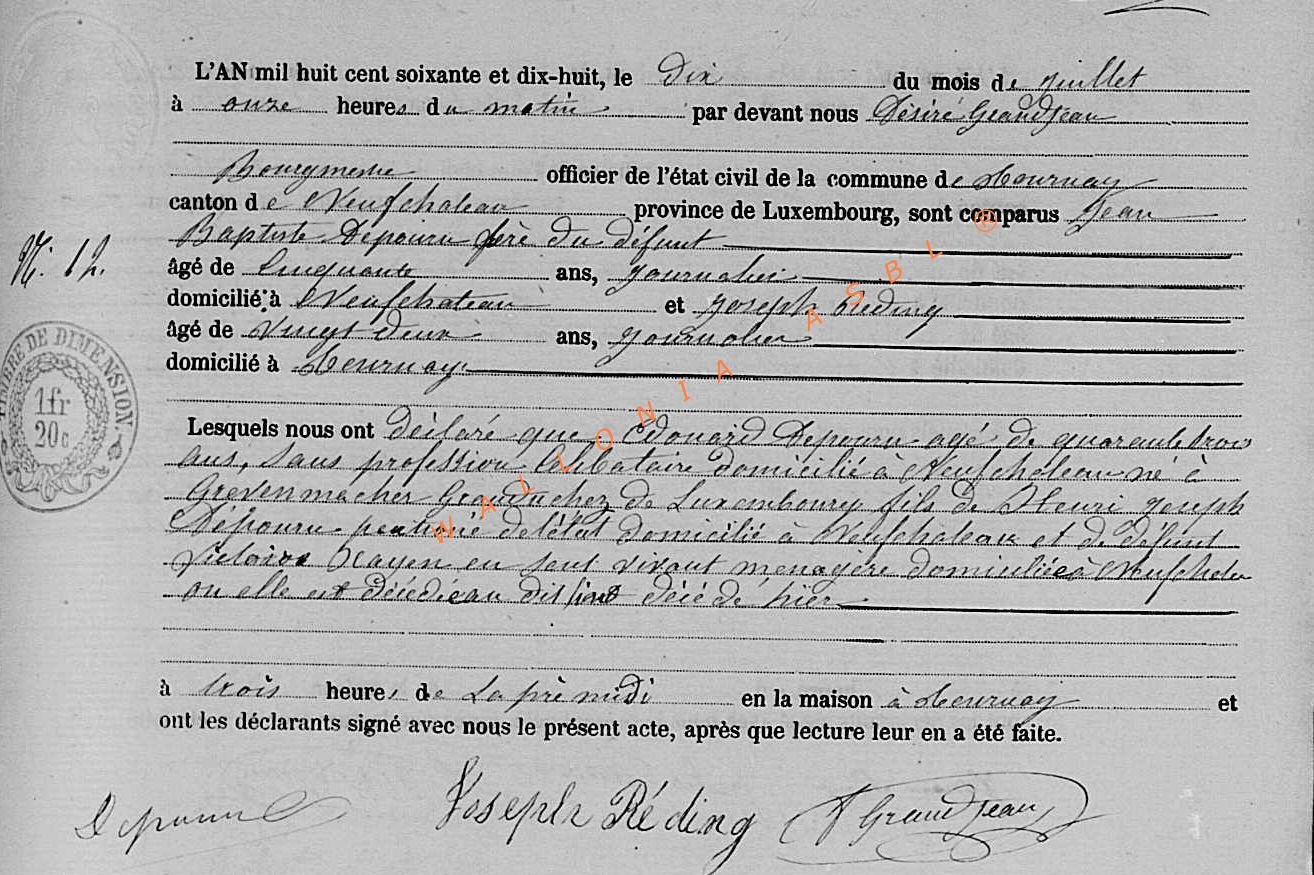 L'AN mil huit cent soixante et dix-huit, le Dix du mois de Juillet
à onze heures du matin par devant nous Désiré Grandjean
Bourgmestre officier de l'état civil de la commune de Tournay
canton de Neufchateau province de Luxembourg, sont comparus Jean
Baptiste Depouru frère du défunt
N. 12.
âgé de Cinquante ans, journalier
domicilié à Neufchateau et Joseph Reding
âgé de Vingt deux ans, journalier
domicilié à Tournay
DE DIMENSION
1fr
20c
Lesquels nous ont déclaré que Edouard Depouru agé de quarante trois
ans, sans profession Celibataire domicilié à Neufchateau né à
Grevenmacher Granduchez de Luxembourg fils de Henri Joseph
Dépouru de l'état domicilié à Neufchateau et de défunt
Victoire en sont vivant menagère domiciliée à Neufchateau
ou elle est décédée au dit lieu décédé hier
à trois heures de La prè midi en la maison à Tournay et
ont les déclarants signé avec nous le présent acte, après que lecture leur en a été faite.
Depouru Joseph Réding Grandjean
WALLONIA ASBL ®